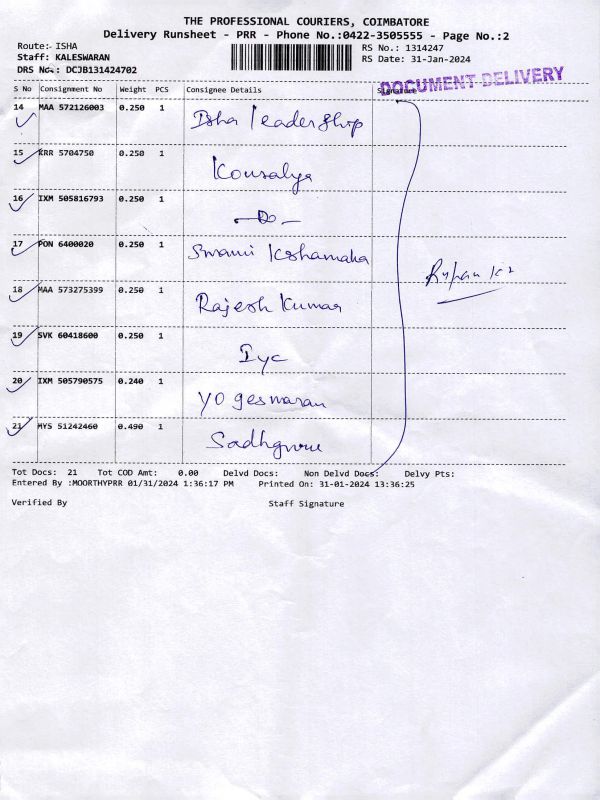 THE PROFESSIONAL COURIERS, COIMBATORE
Delivery Runsheet - PRR - Phone No.:0422-3505555 - Page No.:2
Route:- ISHA
Staff: KALESWARAN
DRS No.: DCJB131424702
RS No.: 1314247
RS Date: 31-Jan-2024
DOCUMENT DELIVERY
S No Consignment No Weight PCS Consignee Details Signature
14 MAA 572126003 0.250 1 Isha Leadership
15 KRR 5704750 0.250 1 Kousalya
16 IXM 505816793 0.250 1 -Do-
17 PON 6400020 0.250 1 Swami Kshamaha
18 MAA 573275399 0.250 1 Rajesh Kumar
19 SVK 60418600 0.250 1 Iyc
20 IXM 505790575 0.240 1 Yogeswaran
21 MYS 51242460 0.490 1 Sadhguru
Tot Docs: 21 Tot COD Amt: 0.00 Delvd Docs: Non Delvd Docs: Delvy Pts:
Entered By :MOORTHYPRR 01/31/2024 1:36:17 PM Printed On: 31-01-2024 13:36:25
Verified By Staff Signature